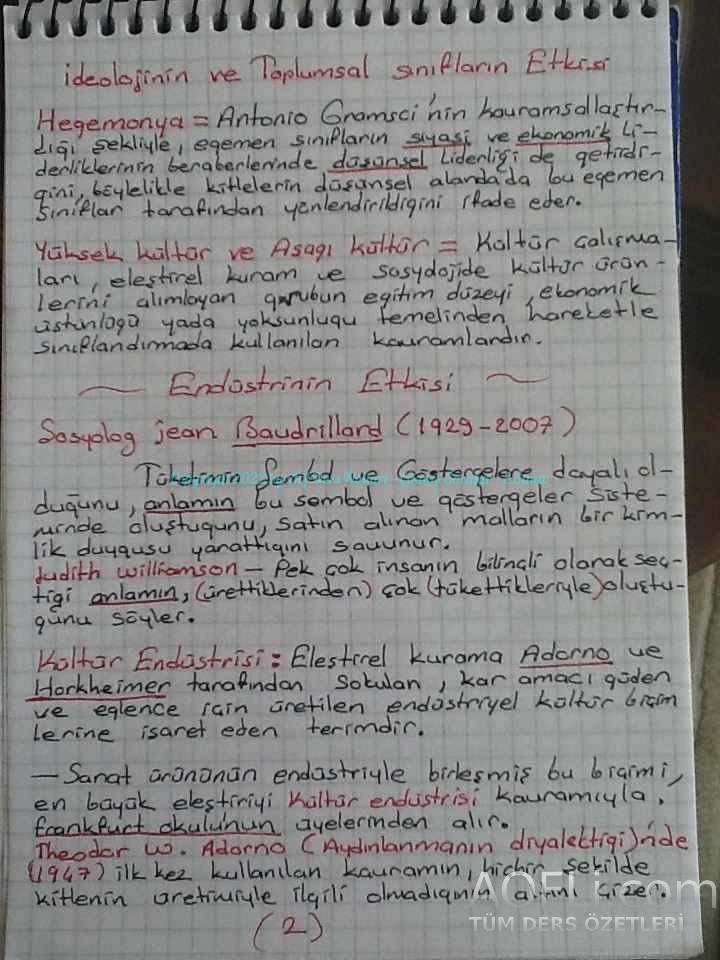 ideolojinin ve Toplumsal sınıfların Etkisi
Hegemonya = Antonio Gramsci'nin kavramsallaştır-
dığı şekliyle, egemen sınıfların siyasi ve ekonomik li-
derliklerinin beraberlerinde düşünsel liderliği de getirdi-
ğini, böylelikle kitlelerin düşünsel alanda'da bu egemen
sınıflar tarafından yönlendirildiğini ifade eder.
Yüksek kültür ve Aşağı kültür = Kültür çalışma-
ları, eleştirel kuram ve sosyolojide kültür ürün-
lerini alımlayan gurubun eğitim düzeyi, ekonomik
üstünlüğü yada yoksunluğu temelinden hareketle
sınıflandırmada kullanılan kavramlardır.
~ Endüstrinin Etkisi ~
Sosyolog jean Baudrillard (1929-2007)
Tüketimin Sembol ve Göstergelere dayalı ol-
duğunu, anlamın bu sembol ve göstergeler siste-
minde oluştuğunu, satın alınan malların bir kim-
lik duygusu yarattığını savunur.
Judith williamson - Pek çok insanın bilinçli olarak seç-
tiği anlamın, (ürettiklerinden) çok (tükettikleriyle) oluştu-
ğunu söyler.
Kültür Endüstrisi: Eleştirel kurama Adorno ve
Horkheimer tarafından sokulan, kar amacı güden
ve eğlence için üretilen endüstriyel kültür biçim
lerine işaret eden terimdir.
- Sanat ürününün endüstriyle birleşmiş bu biçimi,
en büyük eleştiriyi Kültür endüstrisi kavramıyla,
frankfurt okulunun üyelerinden alır.
Theodor w. Adorno (Aydınlanmanın diyalektiği)'nde
(1947) ilk kez kullanılan kavramın, hiçbir şekilde
kitlenin üretimiyle ilgili olmadığının altını çizer.
(2)
TÜM DERS ÖZETLERİ